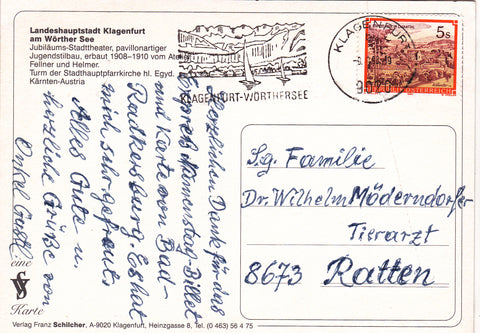 Landeshauptstadt Klagenfurt
am Wörther See
Jubiläums-Stadttheater, pavillonartiger
Jugendstilbau, erbaut 1908–1910 vom Atelier
Fellner und Helmer.
Turm der Stadthauptpfarrkirche hl. Egyd.
Kärnten-Austria
KLAGENFURT-WÖRTHERSEE
KLAGENFURT
9020
5 S
REPUBLIK ÖSTERREICH
Herzlichen Dank für das
Namenstag-Billet
und Karte von Bad-
Radkersburg. Es hat
mich sehr gefreut
Alles Gute u.
herzliche Grüße von
Onkel Gustl
S.g. Familie
Dr. Wilhelm Möderndorfer
Tierarzt
8673 Ratten
eine
Karte
Verlag Franz Schilcher, A-9020 Klagenfurt, Heinzgasse 8, Tel. (0 463) 56 4 75